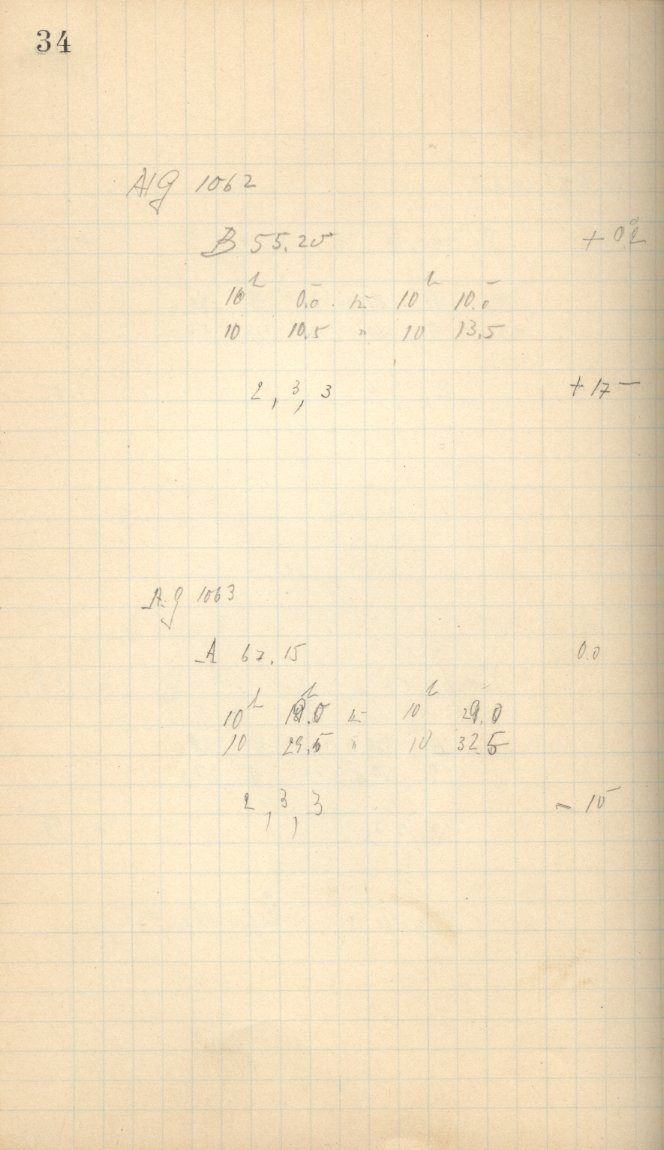 34
A/g 1062
B 55.25 + 0.2
10h 0.0 to 10h 10.0
10 10.5 " 10 13.5
2, 3, 3 + 17
A.g 1063
A 67.15 0.0
10h 19.0 to 10h 29.0
10 29.5 " 10 32.5
2, 3, 3 - 10